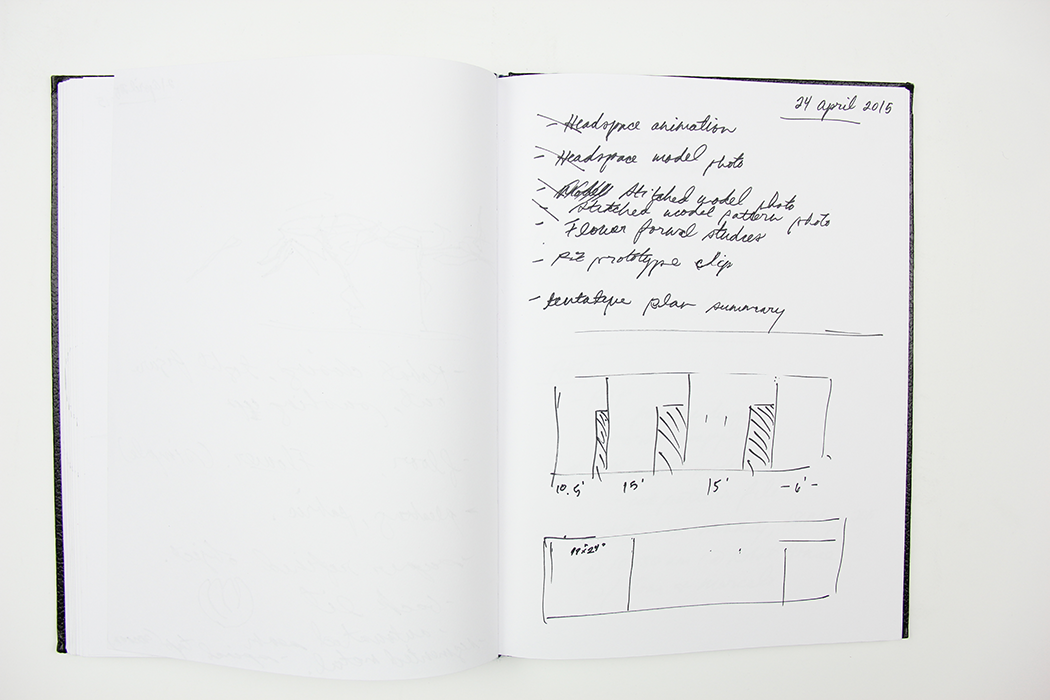 24 april 2015
- Headspace animation
- Headspace model photo
- Stitched model photo
- Stitched model pattern photo
- Flower formal studies
- prototype clip
- plan summary
10.5' 15' 15' - 6' -